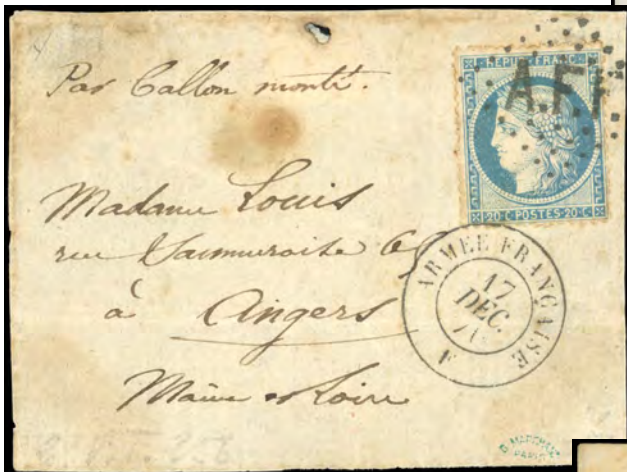 Par Ballon monté.
REPUB FRANC
A.F.F
20·C·POSTES·20·C
Madame Louis
rue Saumuroise
à Angers
Maine & Loire
ARMÉE FRANÇAISE
17
DEC.